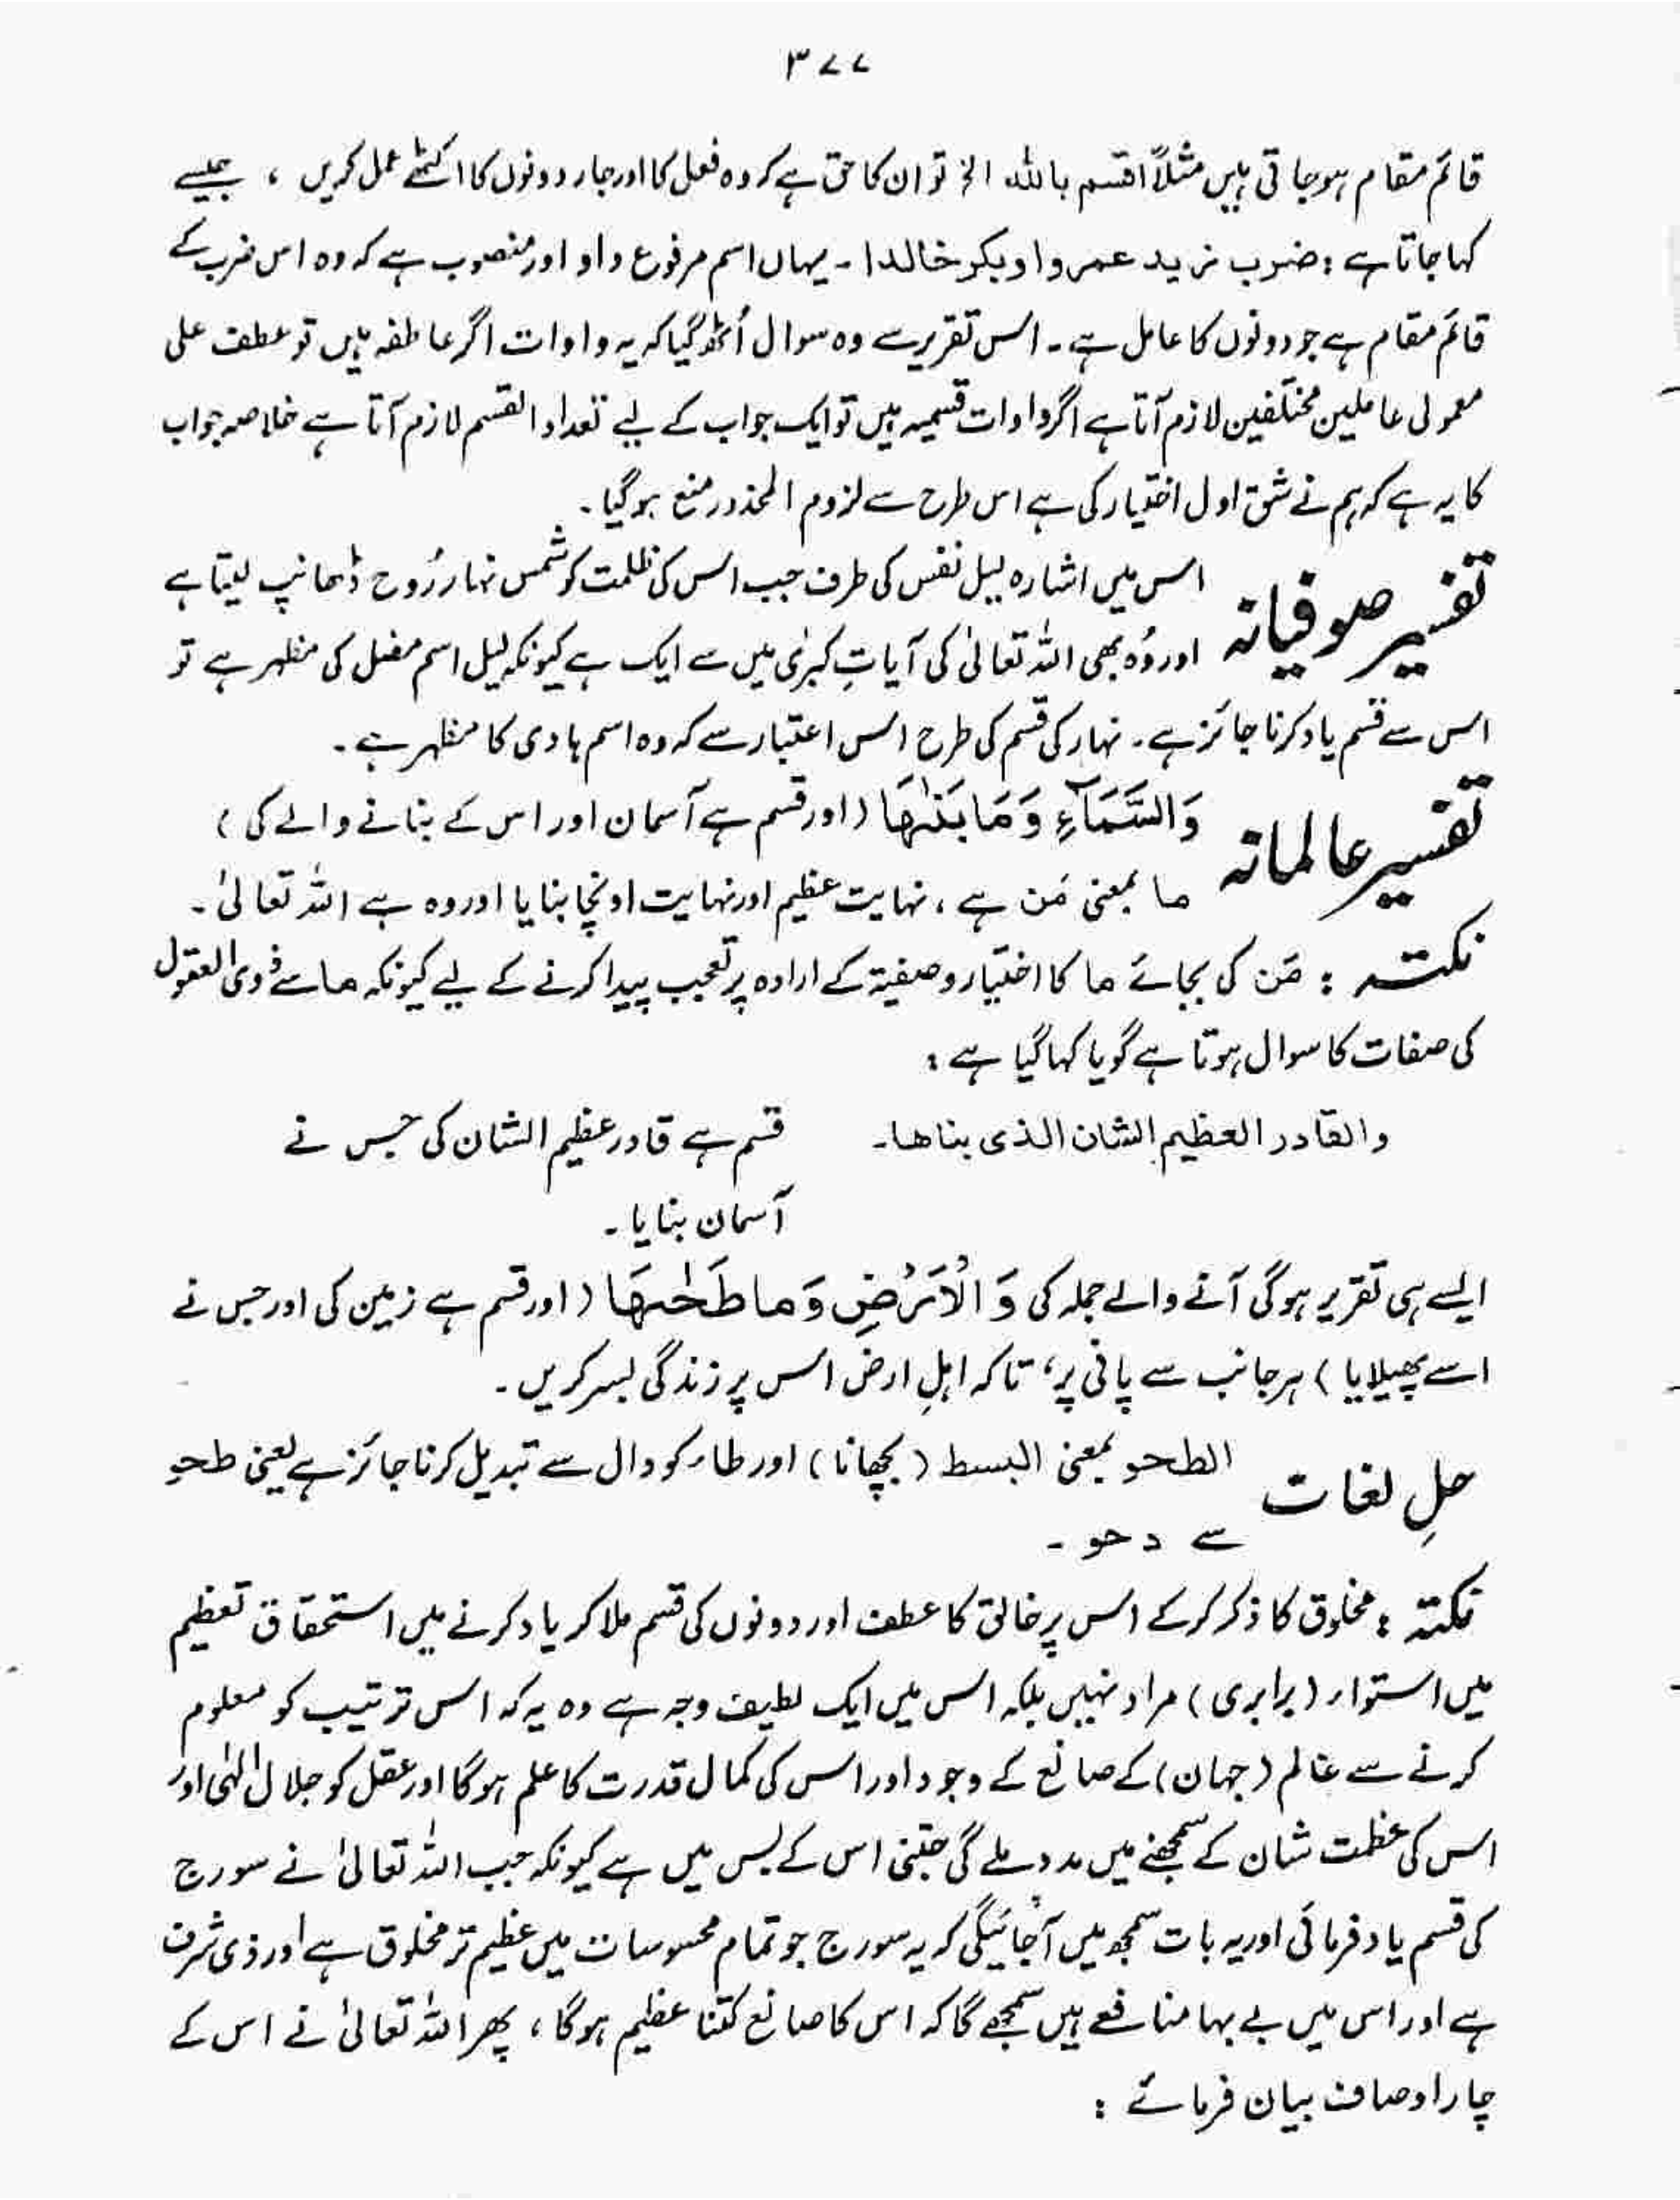 ۳۷۷
قائم مقام ہوجاتی ہیں مثلاً اقسم باللہ الخ تو ان کا حق ہے کہ وہ فعل کا اور جار دونوں کا اکٹھے عمل کریں ، جیسے
کہا جاتا ہے : ضرب زید عمروا وبکر خالدا ۔ یہاں اسم مرفوع واو اور منصوب ہے کہ وہ اس ضرب کے
قائم مقام ہے جو دونوں کا عامل ہے ۔ اس تقریر سے وہ سوال اُٹھ گیا کہ یہ واوات اگر عاطفہ ہیں تو عطف علی
معمولی عاملین مختلفین لازم آتا ہے اگر واوات قسمیہ ہیں تو ایک جواب کے لیے تعداد القسم لازم آتا ہے خلاصہ جواب
کا یہ ہے کہ ہم نے شق اول اختیار کی ہے اس طرح سے لزوم المحذور منع ہوگیا ۔
تفسیر صوفیانہ اس میں اشارہ لیل نفس کی طرف جب اس کی ظلمت کو شمس نہار رُوح ڈھانپ لیتا ہے
اور وُہ بھی اللہ تعالیٰ کی آیاتِ کبریٰ میں سے ایک ہے کیونکہ لیل اسم مضل کی مظہر ہے تو
اس سے قسم یاد کرنا جائز ہے ۔ نہار کی قسم کی طرح اس اعتبار سے کہ وہ اسم ہادی کا مظہر ہے ۔
تفسیر عالمانہ وَالسَّمَآءِ وَمَا بَنٰىهَا ( اور قسم ہے آسمان اور اس کے بنانے والے کی )
ما بمعنی مَن ہے ، نہایت عظیم اور نہایت اونچا بنایا اور وہ ہے اللہ تعالیٰ ۔
نکتہ : مَن کی بجائے ما کا اختیار وصفیۃ کے ارادہ پر تعجب پیدا کرنے کے لیے کیونکہ ما سے ذوی العقول
کی صفات کا سوال ہوتا ہے گویا کہا گیا ہے :
والقادر العظیم الشان الذی بناھا ۔ قسم ہے قادر عظیم الشان کی جس نے
آسمان بنایا ۔
ایسے ہی تقریر ہوگی آنے والے جملہ کی وَالْاَرْضِ وَمَا طَحٰىهَا ( اور قسم ہے زمین کی اور جس نے
اسے پھیلایا ) ہر جانب سے پانی پر ، تاکہ اہلِ ارض اس پر زندگی بسر کریں ۔
حلِ لغات الطحو بمعنی البسط ( بچھانا ) اور طاء کو دال سے تبدیل کرنا جائز ہے یعنی طحو
سے دحو ۔
نکتہ : مخلوق کا ذکر کرکے اس پر خالق کا عطف اور دونوں کی قسم ملا کر یاد کرنے میں استحقاق تعظیم
میں استواء ( برابری ) مراد نہیں بلکہ اس میں ایک لطیف وجہ ہے وہ یہ کہ اس ترتیب کو معلوم
کرنے سے عالم ( جہان ) کے صانع کے وجود اور اس کی کمال قدرت کا علم ہوگا اور عقل کو جلال الٰہی اور
اس کی عظمت شان کے سمجھنے میں مدد ملے گی جتنی اس کے بس میں ہے کیونکہ جب اللہ تعالیٰ نے سورج
کی قسم یاد فرمائی اور یہ بات سمجھ میں آجائیگی کہ یہ سورج جو تمام محسوسات میں عظیم تر مخلوق ہے اور ذی شرف
ہے اور اس میں بے بہا منافع ہیں سمجھے گا کہ اس کا صانع کتنا عظیم ہوگا ، پھر اللہ تعالیٰ نے اس کے
چار اوصاف بیان فرمائے :